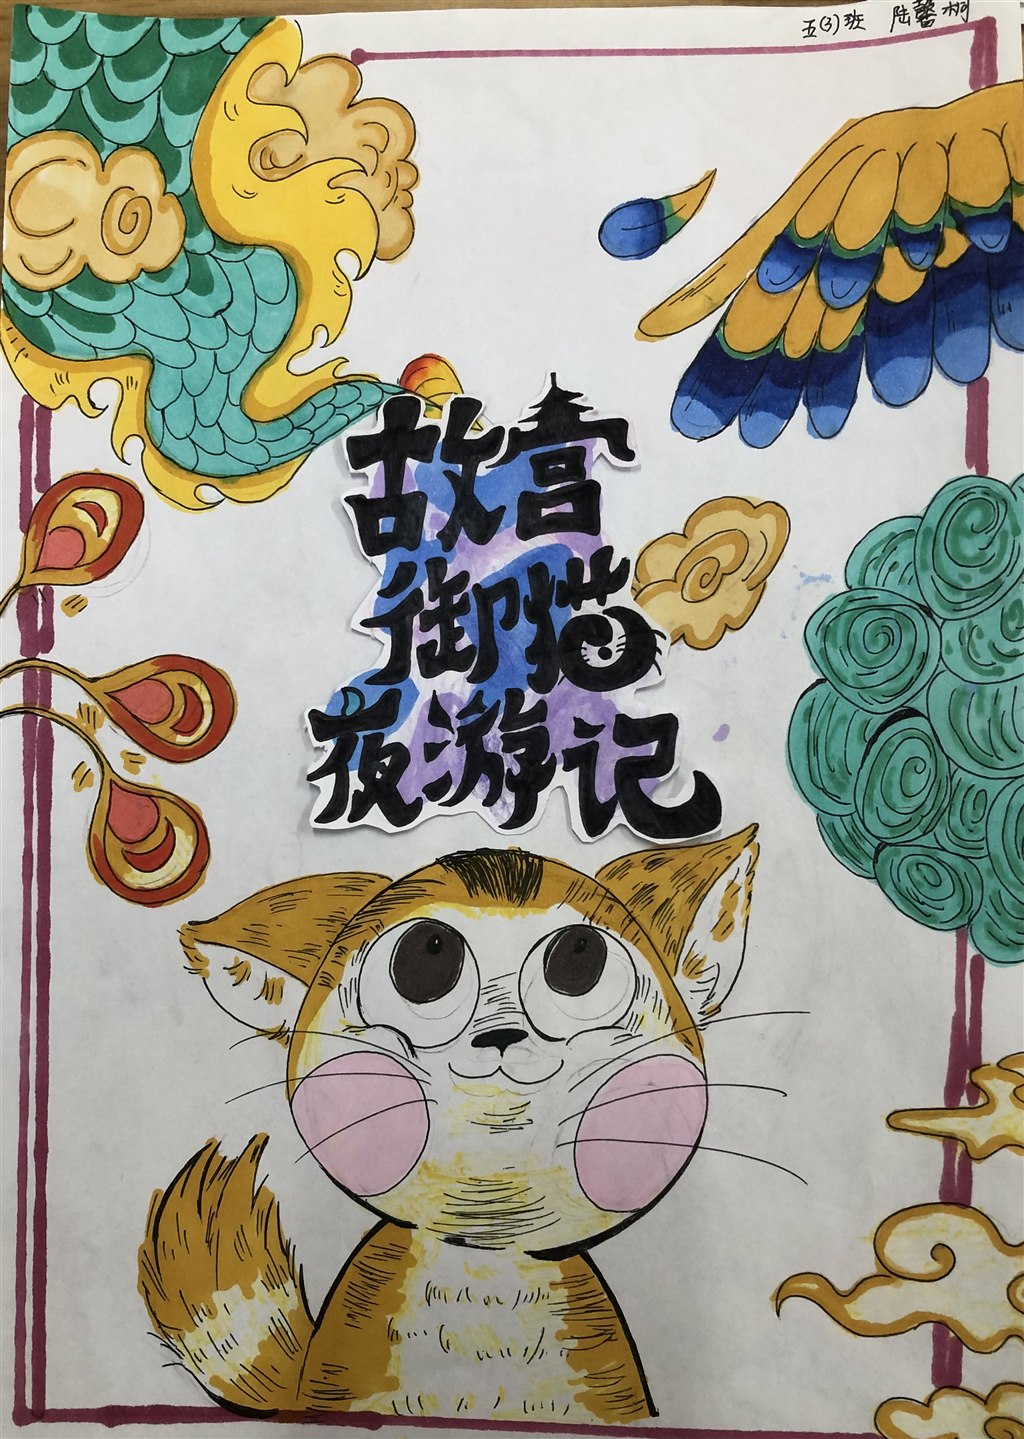 五(3)班 陆馨桐
故宫
御猫
夜游记